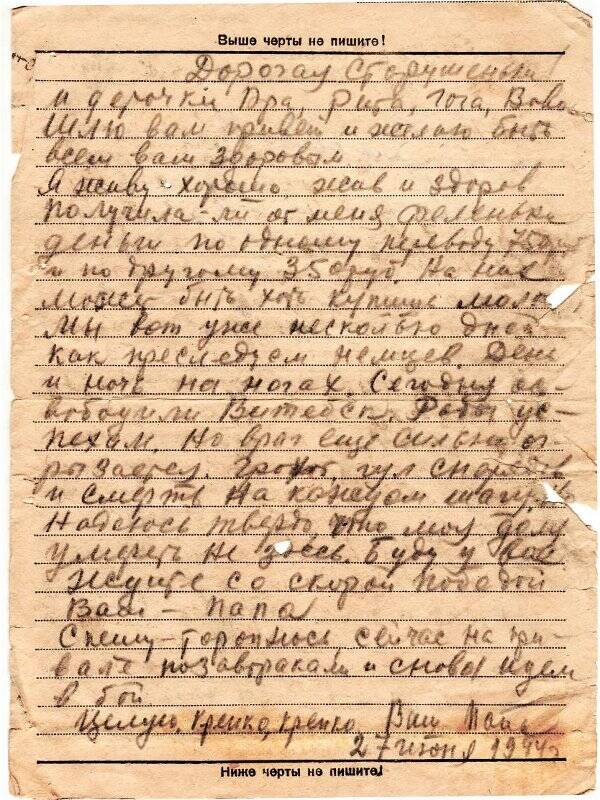 Выше черты не пишите!
Дорогая
и дочки Ира, Рита, Гога, Вова
Шлю вам привет и желаю быть
всем вам здоровым
Я живу хорошо жив и здоров
Получила-ли от меня
деньги по одному переводу 750
и по другому 350 руб. На них
может быть хоть купишь
Мы вот уже несколько дней
как преследуем немцев. День
и ночь на ногах. Сегодня ос-
вободили Витебск. Рады ус-
пехам. Но враг еще сильно ог-
рызается. Грохот, гул снарядов
и смерть на каждом шагу. Но
Надеюсь твердо что моя доля
умереть не здесь. Буду у вас
Ждите со скорой победой
Ваш - Папа
Спешу-тороплюсь, сейчас на при-
вале позавтракали и снова идем
в бой
Целую, крепко, крепко Ваш Папа
27 июня 1944 г
Ниже черты не пишите!